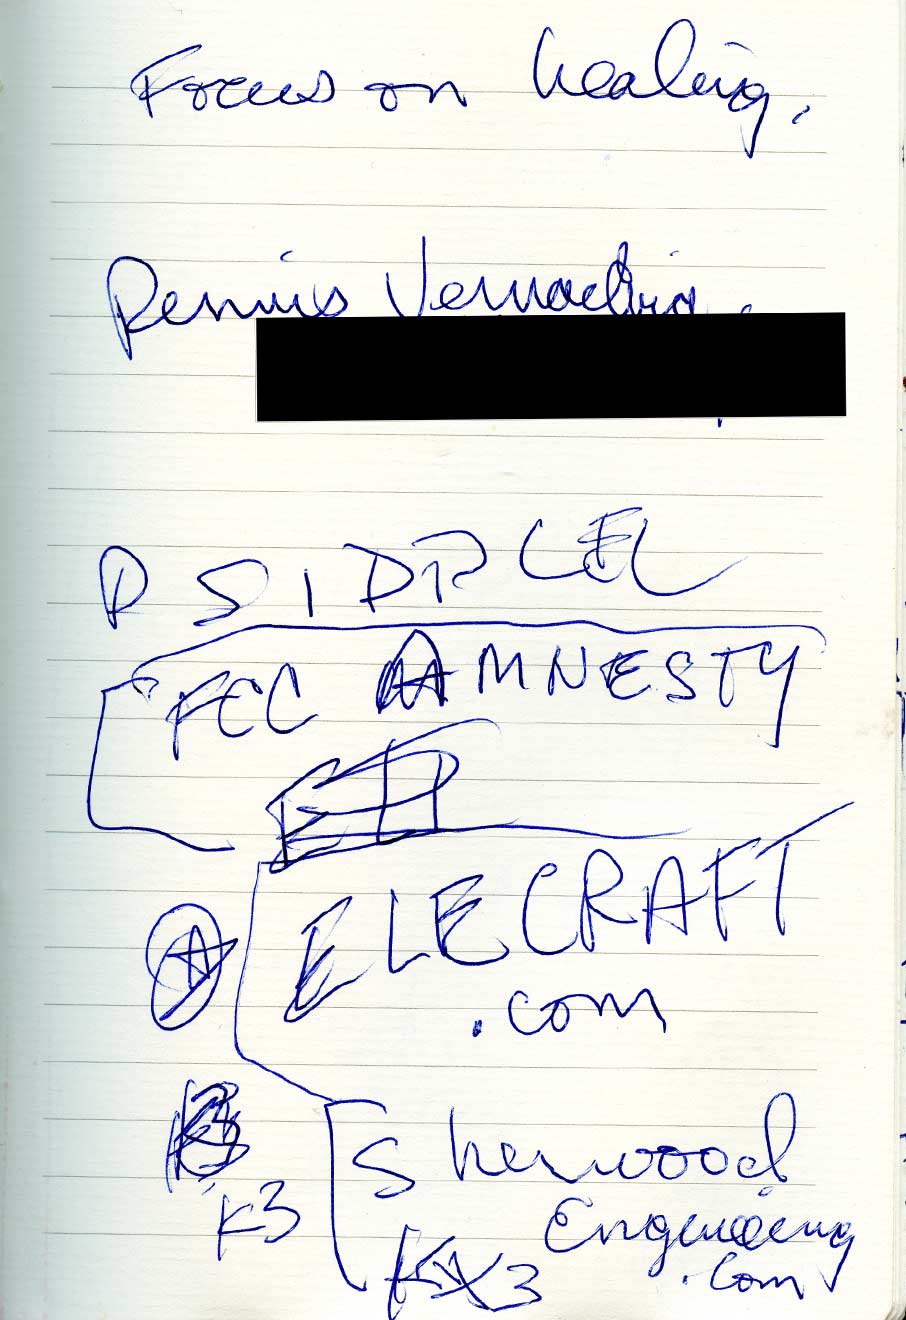 Focus on healing.
Dennis
FCC AMNESTY
ELECRAFT
.com
K3
Sherwood
Engineering
.com
KX3